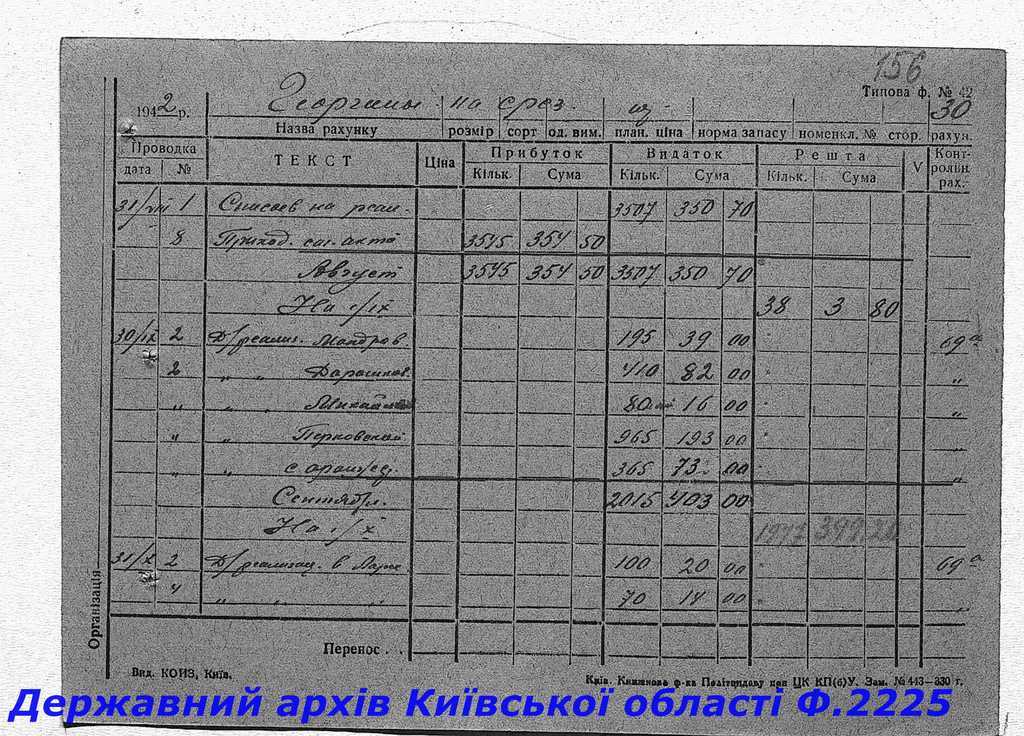 156
Типова ф. № 42
1942 р. Георгины на срез. шт. 30
Назва рахунку розмір сорт од. вим. план. ціна норма запасу номенкл. № стор. рахун.
Проводка ТЕКСТ Ціна Прибуток Видаток Решта V Контрольн. рах.
дата № Кільк. Сума Кільк. Сума Кільк. Сума
31/VIII 1 на реал. 3507 350 70
8 Приход. акта 3545 354 50
Август 3545 354 50 3507 350 70
На 1/IX 38 3 80
30/IX 2 Д/реализ. 195 39 00 69а
2 " " 410 82 00 "
" " " 80 16 00 "
" " 965 193 00
" " 365 73 00 "
Сентябрь. 2015 403 00
На 1/X 1977 399.20
31/X 2 Д/реализац. в 100 20 00 69а
4 " " " 70 14 00 "
Перенос . .
Організація
Вид. КОИЗ, Київ.
Київ. Книжкова ф-ка Політвидаву при ЦК КП(б)У. Зам. № 443—330 г.
Державний архів Київської області Ф.2225